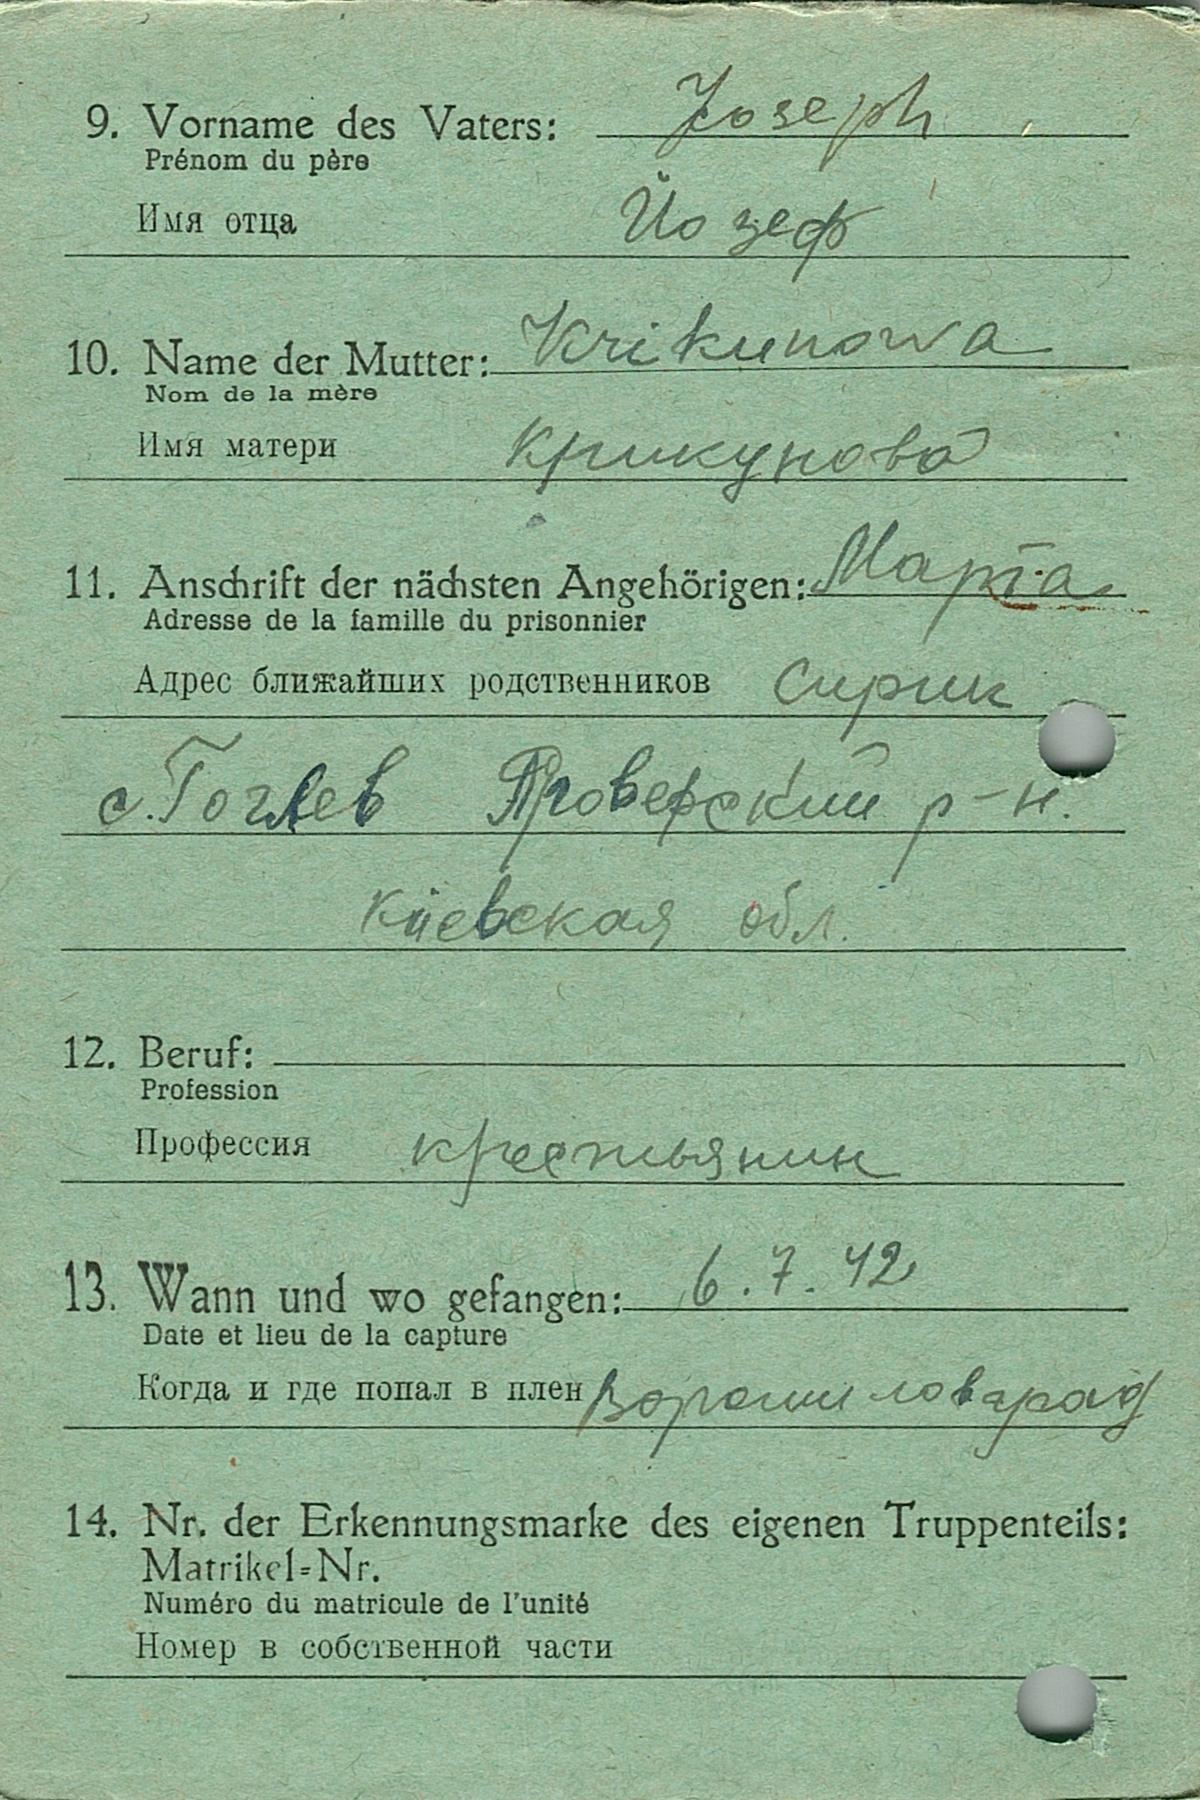 9. Vorname des Vaters: Joseph
Prénom du père
Имя отца Йозеф
10. Name der Mutter: Krikunowa
Nom de la mère
Имя матери Крикунова
11. Anschrift der nächsten Angehörigen: Марта
Adresse de la famille du prisonnier
Адрес ближайших родственников Сирик
с. Гоглев р-н.
Киевская обл.
12. Beruf:
Profession
Профессия крестьянин
13. Wann und wo gefangen: 6.7.42
Date et lieu de la capture
Когда и где попал в плен Ворошиловград
14. Nr. der Erkennungsmarke des eigenen Truppenteils:
Matrikel=Nr.
Numéro du matricule de l'unité
Номер в собственной части